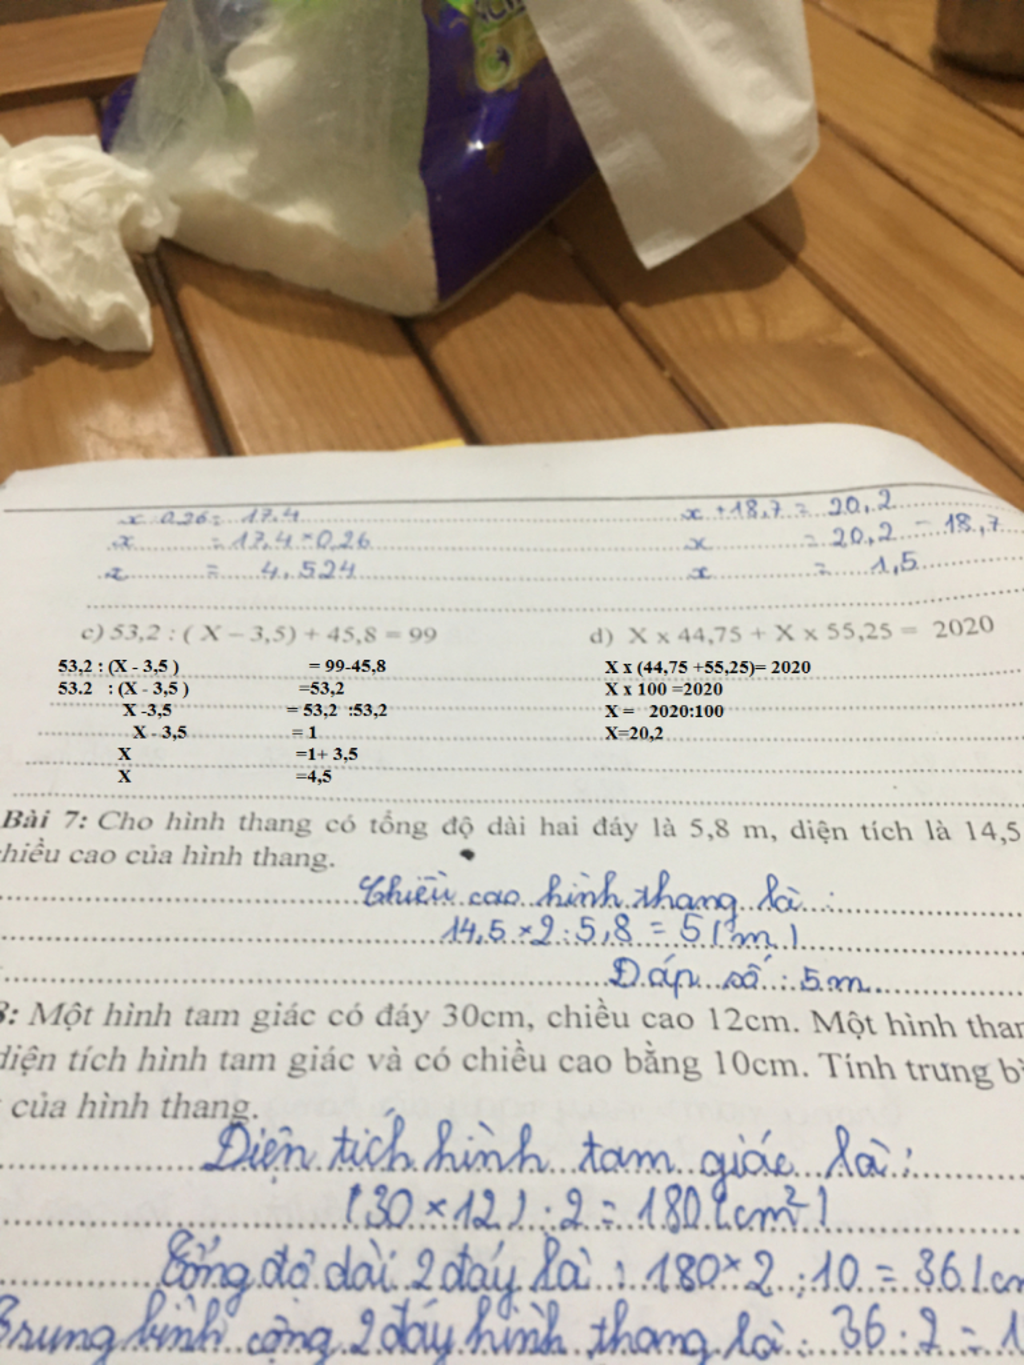 x : 0,26 = 17,4
x = 17,4 × 0,26
x = 4,524
x + 18,7 = 20,2
x = 20,2 - 18,7
x = 1,5
c) 53,2 : ( X – 3,5) + 45,8 = 99
53,2 : (X - 3,5 ) = 99-45,8
53.2 : (X - 3,5 ) =53,2
X -3,5 = 53,2 :53,2
X - 3,5 = 1
X =1+ 3,5
X =4,5
d) X x 44,75 + X x 55,25 = 2020
X x (44,75 +55,25)= 2020
X x 100 =2020
X = 2020:100
X=20,2
Bài 7: Cho hình thang có tổng độ dài hai đáy là 5,8 m, diện tích là 14,5
hiều cao của hình thang.
Chiều cao hình thang là :
14,5 × 2 : 5,8 = 5 ( m )
Đáp số : 5m
8: Một hình tam giác có đáy 30cm, chiều cao 12cm. Một hình than
diện tích hình tam giác và có chiều cao bằng 10cm. Tính trưng bì
của hình thang.
Diện tích hình tam giác là :
( 30 × 12 ) : 2 = 180 ( cm² )
Tổng độ dài 2 đáy là : 180 × 2 : 10 = 36 ( cm
Trung bình cộng 2 đáy hình thang là : 36 : 2 = 1